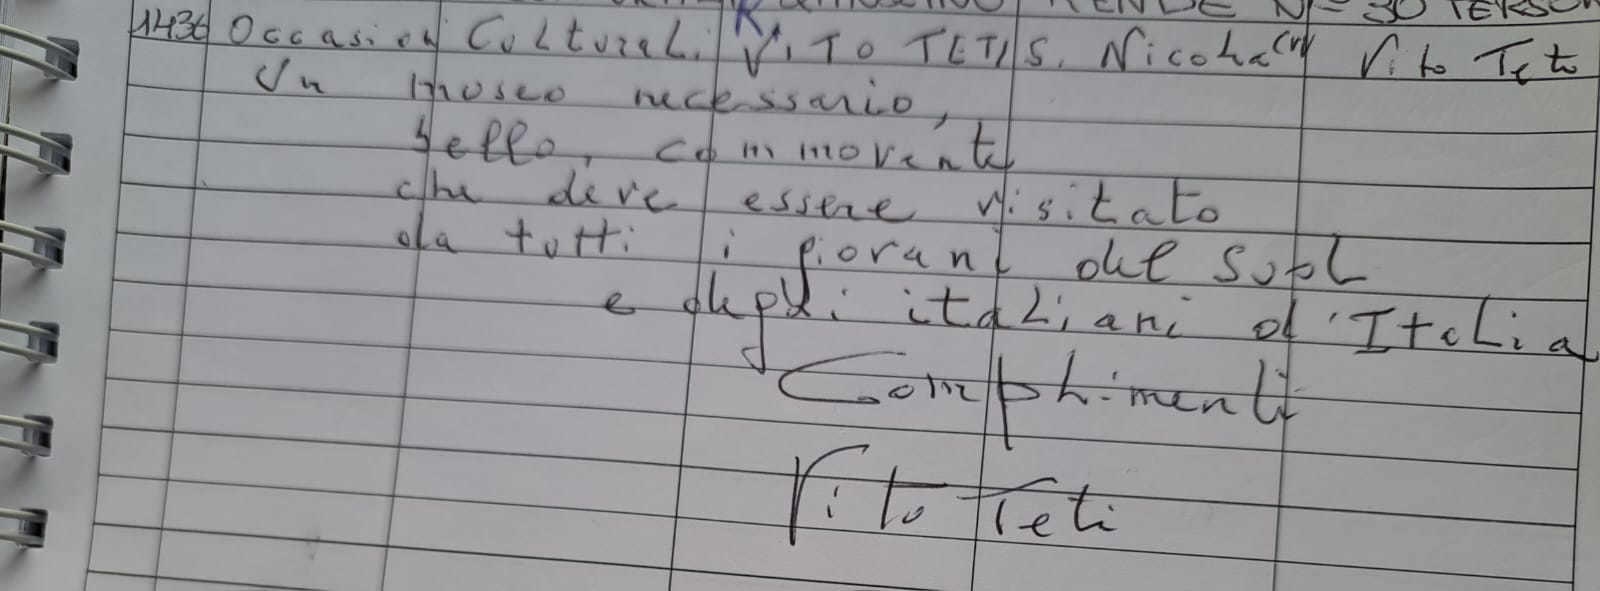 RENDE N= 30 PERSON
1436 Occasioni Culturali. VITO TETI S. Nicola (VV) Vito Teti
Un museo necessario,
bello, commovente
che deve essere visitato
da tutti i giovani del Sud
e degli italiani d'Italia
Complimenti
Vito Teti